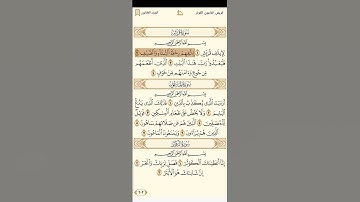 قريش، الماعون، الكوثر
الجزء الثلاثون
سورة قريش
بسم الله الرحمن الرحيم
لإيلاف قريش ١ إيلافهم رحلة الشتاء والصيف ٢
فليعبدوا رب هذا البيت ٣ الذي أطعمهم
من جوع وآمنهم من خوف ٤
سورة الماعون
بسم الله الرحمن الرحيم
أرأيت الذي يكذب بالدين ١ فذلك الذي يدع
اليتيم ٢ ولا يحض على طعام المسكين ٣ فويل
للمصلين ٤ الذين هم عن صلاتهم ساهون ٥
الذين هم يراءون ٦ ويمنعون الماعون ٧
سورة الكوثر
بسم الله الرحمن الرحيم
إنا أعطيناك الكوثر ١ فصل لربك وانحر ٢
إن شانئك هو الأبتر ٣
٦٠٢